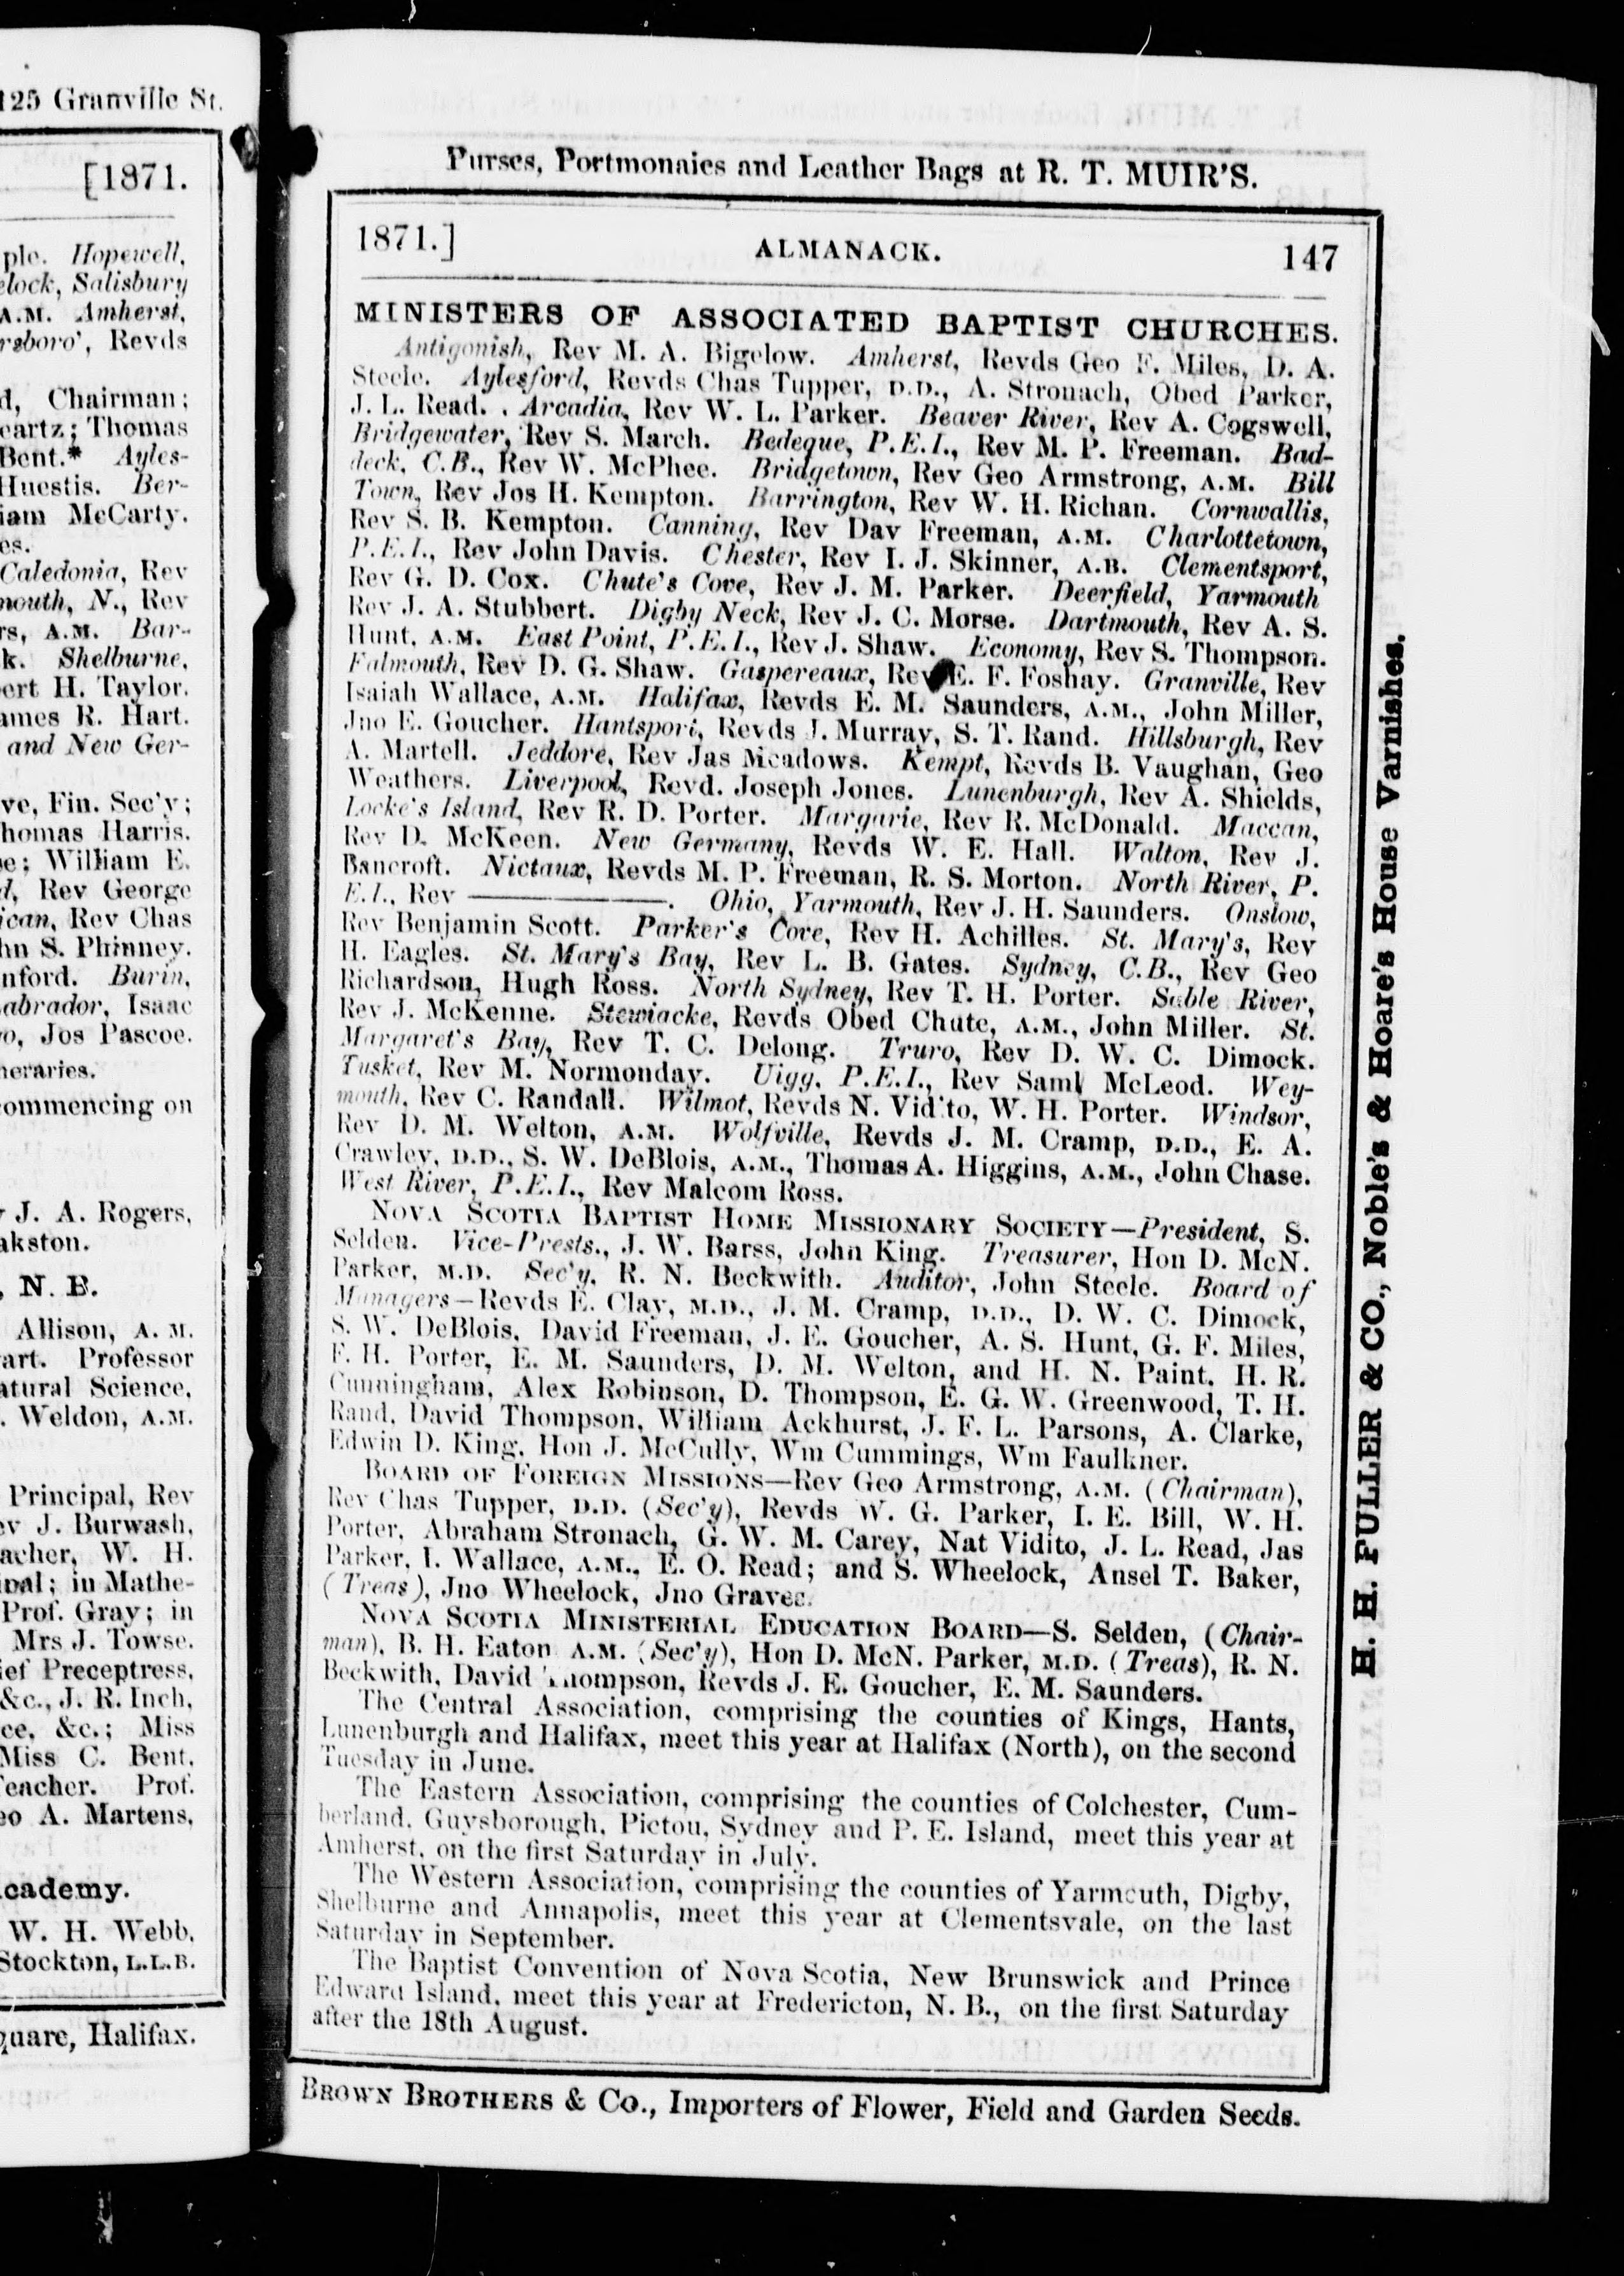 125 Granville St.
[1871.
ple. Hopewell,
elock, Salisbury
A.M. Amherst,
rsboro', Revds
d, Chairman;
eartz; Thomas
Bent.* Ayles-
Huestis. Ber-
iam McCarty.
es.
Caledonia, Rev
mouth, N., Rev
rs, A.M. Bar-
k. Shelburne,
ert H. Taylor.
ames R. Hart.
and New Ger-
ve, Fin. Sec'y;
homas Harris.
e; William E.
d, Rev George
ican, Rev Chas
hn S. Phinney.
nford. Burin,
abrador, Isaac
o, Jos Pascoe.
neraries.
ommencing on
J. A. Rogers,
akston.
, N. B.
Allison, A. M.
art. Professor
atural Science,
. Weldon, A.M.
Principal, Rev
ev J. Burwash,
acher, W. H.
ipal; in Mathe-
Prof. Gray; in
Mrs J. Towse.
ief Preceptress,
&c., J. R. Inch,
ce, &c.; Miss
Miss C. Bent.
Teacher. Prof.
eo A. Martens,
cademy.
W. H. Webb,
Stockton, L.L.B.
quare, Halifax.
Purses, Portmonaies and Leather Bags at R. T. MUIR'S.
1871.] ALMANACK. 147
MINISTERS OF ASSOCIATED BAPTIST CHURCHES.
Antigonish, Rev M. A. Bigelow. Amherst, Revds Geo F. Miles, D. A.
Steele. Aylesford, Revds Chas Tupper, D.D., A. Stronach, Obed Parker,
J. L. Read. Arcadia, Rev W. L. Parker. Beaver River, Rev A. Cogswell,
Bridgewater, Rev S. March. Bedeque, P.E.I., Rev M. P. Freeman. Bad-
deck, C.B., Rev W. McPhee. Bridgetown, Rev Geo Armstrong, A.M. Bill
Town, Rev Jos H. Kempton. Barrington, Rev W. H. Richan. Cornwallis,
Rev S. B. Kempton. Canning, Rev Dav Freeman, A.M. Charlottetown,
P.E.I., Rev John Davis. Chester, Rev I. J. Skinner, A.B. Clementsport,
Rev G. D. Cox. Chute's Cove, Rev J. M. Parker. Deerfield, Yarmouth
Rev J. A. Stubbert. Digby Neck, Rev J. C. Morse. Dartmouth, Rev A. S.
Hunt, A.M. East Point, P.E.I., Rev J. Shaw. Economy, Rev S. Thompson.
Falmouth, Rev D. G. Shaw. Gaspereaux, Rev E. F. Foshay. Granville, Rev
Isaiah Wallace, A.M. Halifax, Revds E. M. Saunders, A.M., John Miller,
Jno E. Goucher. Hantsport, Revds J. Murray, S. T. Rand. Hillsburgh, Rev
A. Martell. Jeddore, Rev Jas Meadows. Kempt, Revds B. Vaughan, Geo
Weathers. Liverpool, Revd. Joseph Jones. Lunenburgh, Rev A. Shields,
Locke's Island, Rev R. D. Porter. Margarie, Rev R. McDonald. Maccan,
Rev D. McKeen. New Germany, Revds W. E. Hall. Walton, Rev J.
Bancroft. Nictaux, Revds M. P. Freeman, R. S. Morton. North River, P.
E.I., Rev ————. Ohio, Yarmouth, Rev J. H. Saunders. Onslow,
Rev Benjamin Scott. Parker's Cove, Rev H. Achilles. St. Mary's, Rev
H. Eagles. St. Mary's Bay, Rev L. B. Gates. Sydney, C.B., Rev Geo
Richardson, Hugh Ross. North Sydney, Rev T. H. Porter. Sable River,
Rev J. McKenne. Stewiacke, Revds Obed Chute, A.M., John Miller. St.
Margaret's Bay, Rev T. C. Delong. Truro, Rev D. W. C. Dimock.
Tusket, Rev M. Normonday. Uigg, P.E.I., Rev Saml McLeod. Wey-
mouth, Rev C. Randall. Wilmot, Revds N. Vid'to, W. H. Porter. Windsor,
Rev D. M. Welton, A.M. Wolfville, Revds J. M. Cramp, D.D., E. A.
Crawley, D.D., S. W. DeBlois, A.M., Thomas A. Higgins, A.M., John Chase.
West River, P.E.I., Rev Malcom Ross.
NOVA SCOTIA BAPTIST HOME MISSIONARY SOCIETY—President, S.
Selden. Vice-Prests., J. W. Barss, John King. Treasurer, Hon D. McN.
Parker, M.D. Sec'y, R. N. Beckwith. Auditor, John Steele. Board of
Managers—Revds E. Clay, M.D., J. M. Cramp, D.D., D. W. C. Dimock,
S. W. DeBlois, David Freeman, J. E. Goucher, A. S. Hunt, G. F. Miles,
F. H. Porter, E. M. Saunders, D. M. Welton, and H. N. Paint, H. R.
Cunningham, Alex Robinson, D. Thompson, E. G. W. Greenwood, T. H.
Rand, David Thompson, William Ackhurst, J. F. L. Parsons, A. Clarke,
Edwin D. King, Hon J. McCully, Wm Cummings, Wm Faulkner.
BOARD OF FOREIGN MISSIONS—Rev Geo Armstrong, A.M. (Chairman),
Rev Chas Tupper, D.D. (Sec'y), Revds W. G. Parker, I. E. Bill, W. H.
Porter, Abraham Stronach, G. W. M. Carey, Nat Vidito, J. L. Read, Jas
Parker, I. Wallace, A.M., E. O. Read; and S. Wheelock, Ansel T. Baker,
(Treas), Jno Wheelock, Jno Graves.
NOVA SCOTIA MINISTERIAL EDUCATION BOARD—S. Selden, (Chair-
man), B. H. Eaton A.M. (Sec'y), Hon D. McN. Parker, M.D. (Treas), R. N.
Beckwith, David Thompson, Revds J. E. Goucher, E. M. Saunders.
The Central Association, comprising the counties of Kings, Hants,
Lunenburgh and Halifax, meet this year at Halifax (North), on the second
Tuesday in June.
The Eastern Association, comprising the counties of Colchester, Cum-
berland, Guysborough, Pictou, Sydney and P. E. Island, meet this year at
Amherst, on the first Saturday in July.
The Western Association, comprising the counties of Yarmouth, Digby,
Shelburne and Annapolis, meet this year at Clementsvale, on the last
Saturday in September.
The Baptist Convention of Nova Scotia, New Brunswick and Prince
Edward Island, meet this year at Fredericton, N. B., on the first Saturday
after the 18th August.
BROWN BROTHERS & CO., Importers of Flower, Field and Garden Seeds.
H. H. FULLER & CO., Noble's & Hoare's House Varnishes.